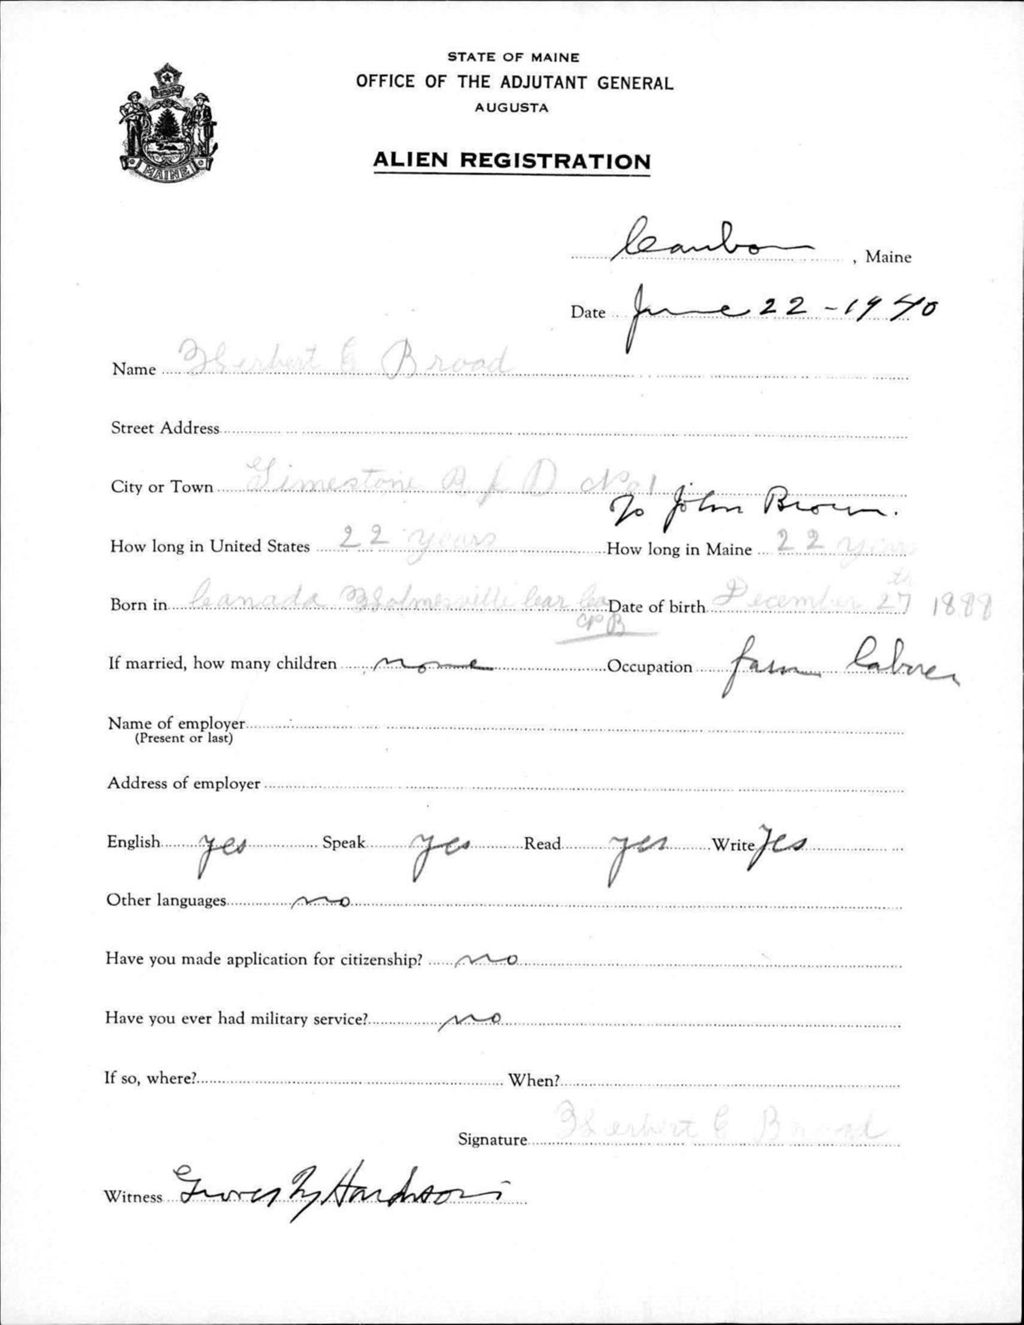 STATE OF MAINE
OFFICE OF THE ADJUTANT GENERAL
AUGUSTA
ALIEN REGISTRATION
MAINE
Caribou, Maine
Date June 22-1940
Name Herbert C Broad
Street Address
City or Town Limestone R F D No 1
℅ John Brown.
How long in United States 22 years How long in Maine 22 years
Born in Canada Holmesville Car Co Date of birth December 27th 1888
N B
If married, how many children none Occupation farm laborer
Name of employer
(Present or last)
Address of employer
English yes Speak yes Read yes Write yes
Other languages no
Have you made application for citizenship? no
Have you ever had military service? no
If so, where? When?
Signature Herbert C Broad
Witness Hardison